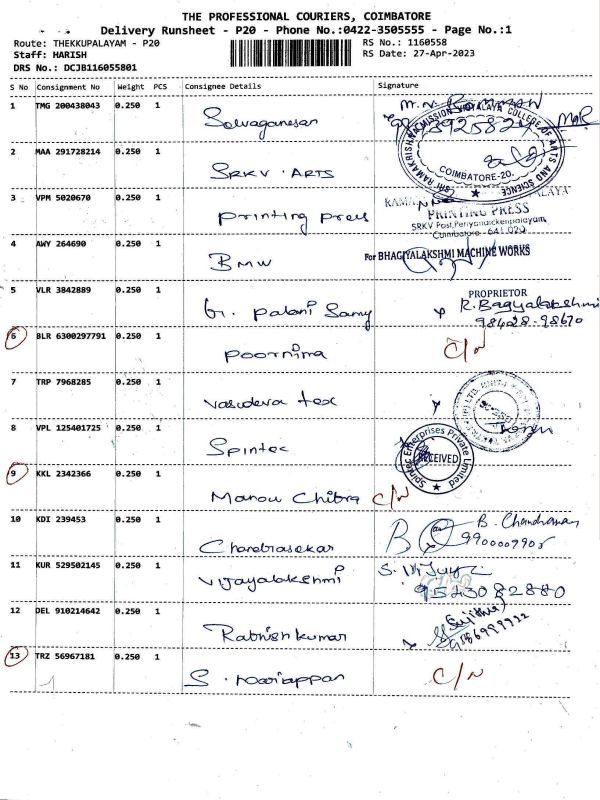 THE PROFESSIONAL COURIERS, COIMBATORE
Delivery Runsheet - P20 - Phone No.:0422-3505555 - Page No.:1
Route: THEKKUPALAYAM - P20 RS No.: 1160558
Staff: HARISH RS Date: 27-Apr-2023
DRS No.: DCJB116055801
S No Consignment No Weight PCS Consignee Details Signature
1 TMG 200438043 0.250 1
SRI RAMAKRISHNA MISSION VIDYALAYA COLLEGE OF ARTS AND SCIENCE
COIMBATORE-20.
2 MAA 291728214 0.250 1 SRKV . ARTS
3 VPM 5020670 0.250 1 Printing Press
PRINTING PRESS
SRKV Post, Periyanaickenpalayam,
Coimbatore - 641 020
4 AWY 264690 0.250 1 BMW
For BHAGIYALAKSHMI MACHINE WORKS
PROPRIETOR
5 VLR 3842889 0.250 1 Palani Samy R. Bagyalakshmi
98428-98670
6 BLR 6300297791 0.250 1 Poornima C/N
7 TRP 7968285 0.250 1 Vasudeva tex
8 VPL 125401725 0.250 1 Spintec
Spintec Enterprises Private Limited
RECEIVED
9 KKL 2342366 0.250 1 Chitra C/N
10 KDI 239453 0.250 1 Chandrasekar B. Chandran
11 KUR 529502145 0.250 1 Vijayalakshmi
12 DEL 910214642 0.250 1
13 TRZ 56967181 0.250 1 S. Mariappan C/N